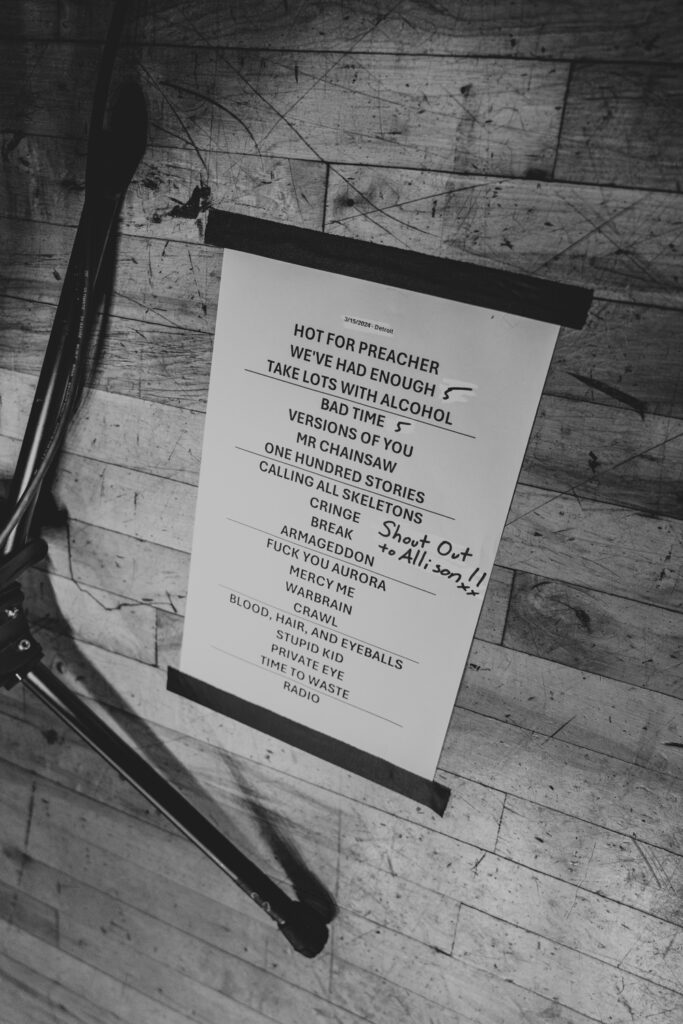 3/15/2024 - Detroit
HOT FOR PREACHER
WE'VE HAD ENOUGH 5
TAKE LOTS WITH ALCOHOL
BAD TIME 5
VERSIONS OF YOU
MR CHAINSAW
ONE HUNDRED STORIES
CALLING ALL SKELETONS
CRINGE
BREAK
Shout Out
to Allison!!
xx
ARMAGEDDON
FUCK YOU AURORA
MERCY ME
WARBRAIN
CRAWL
BLOOD, HAIR, AND EYEBALLS
STUPID KID
PRIVATE EYE
TIME TO WASTE
RADIO